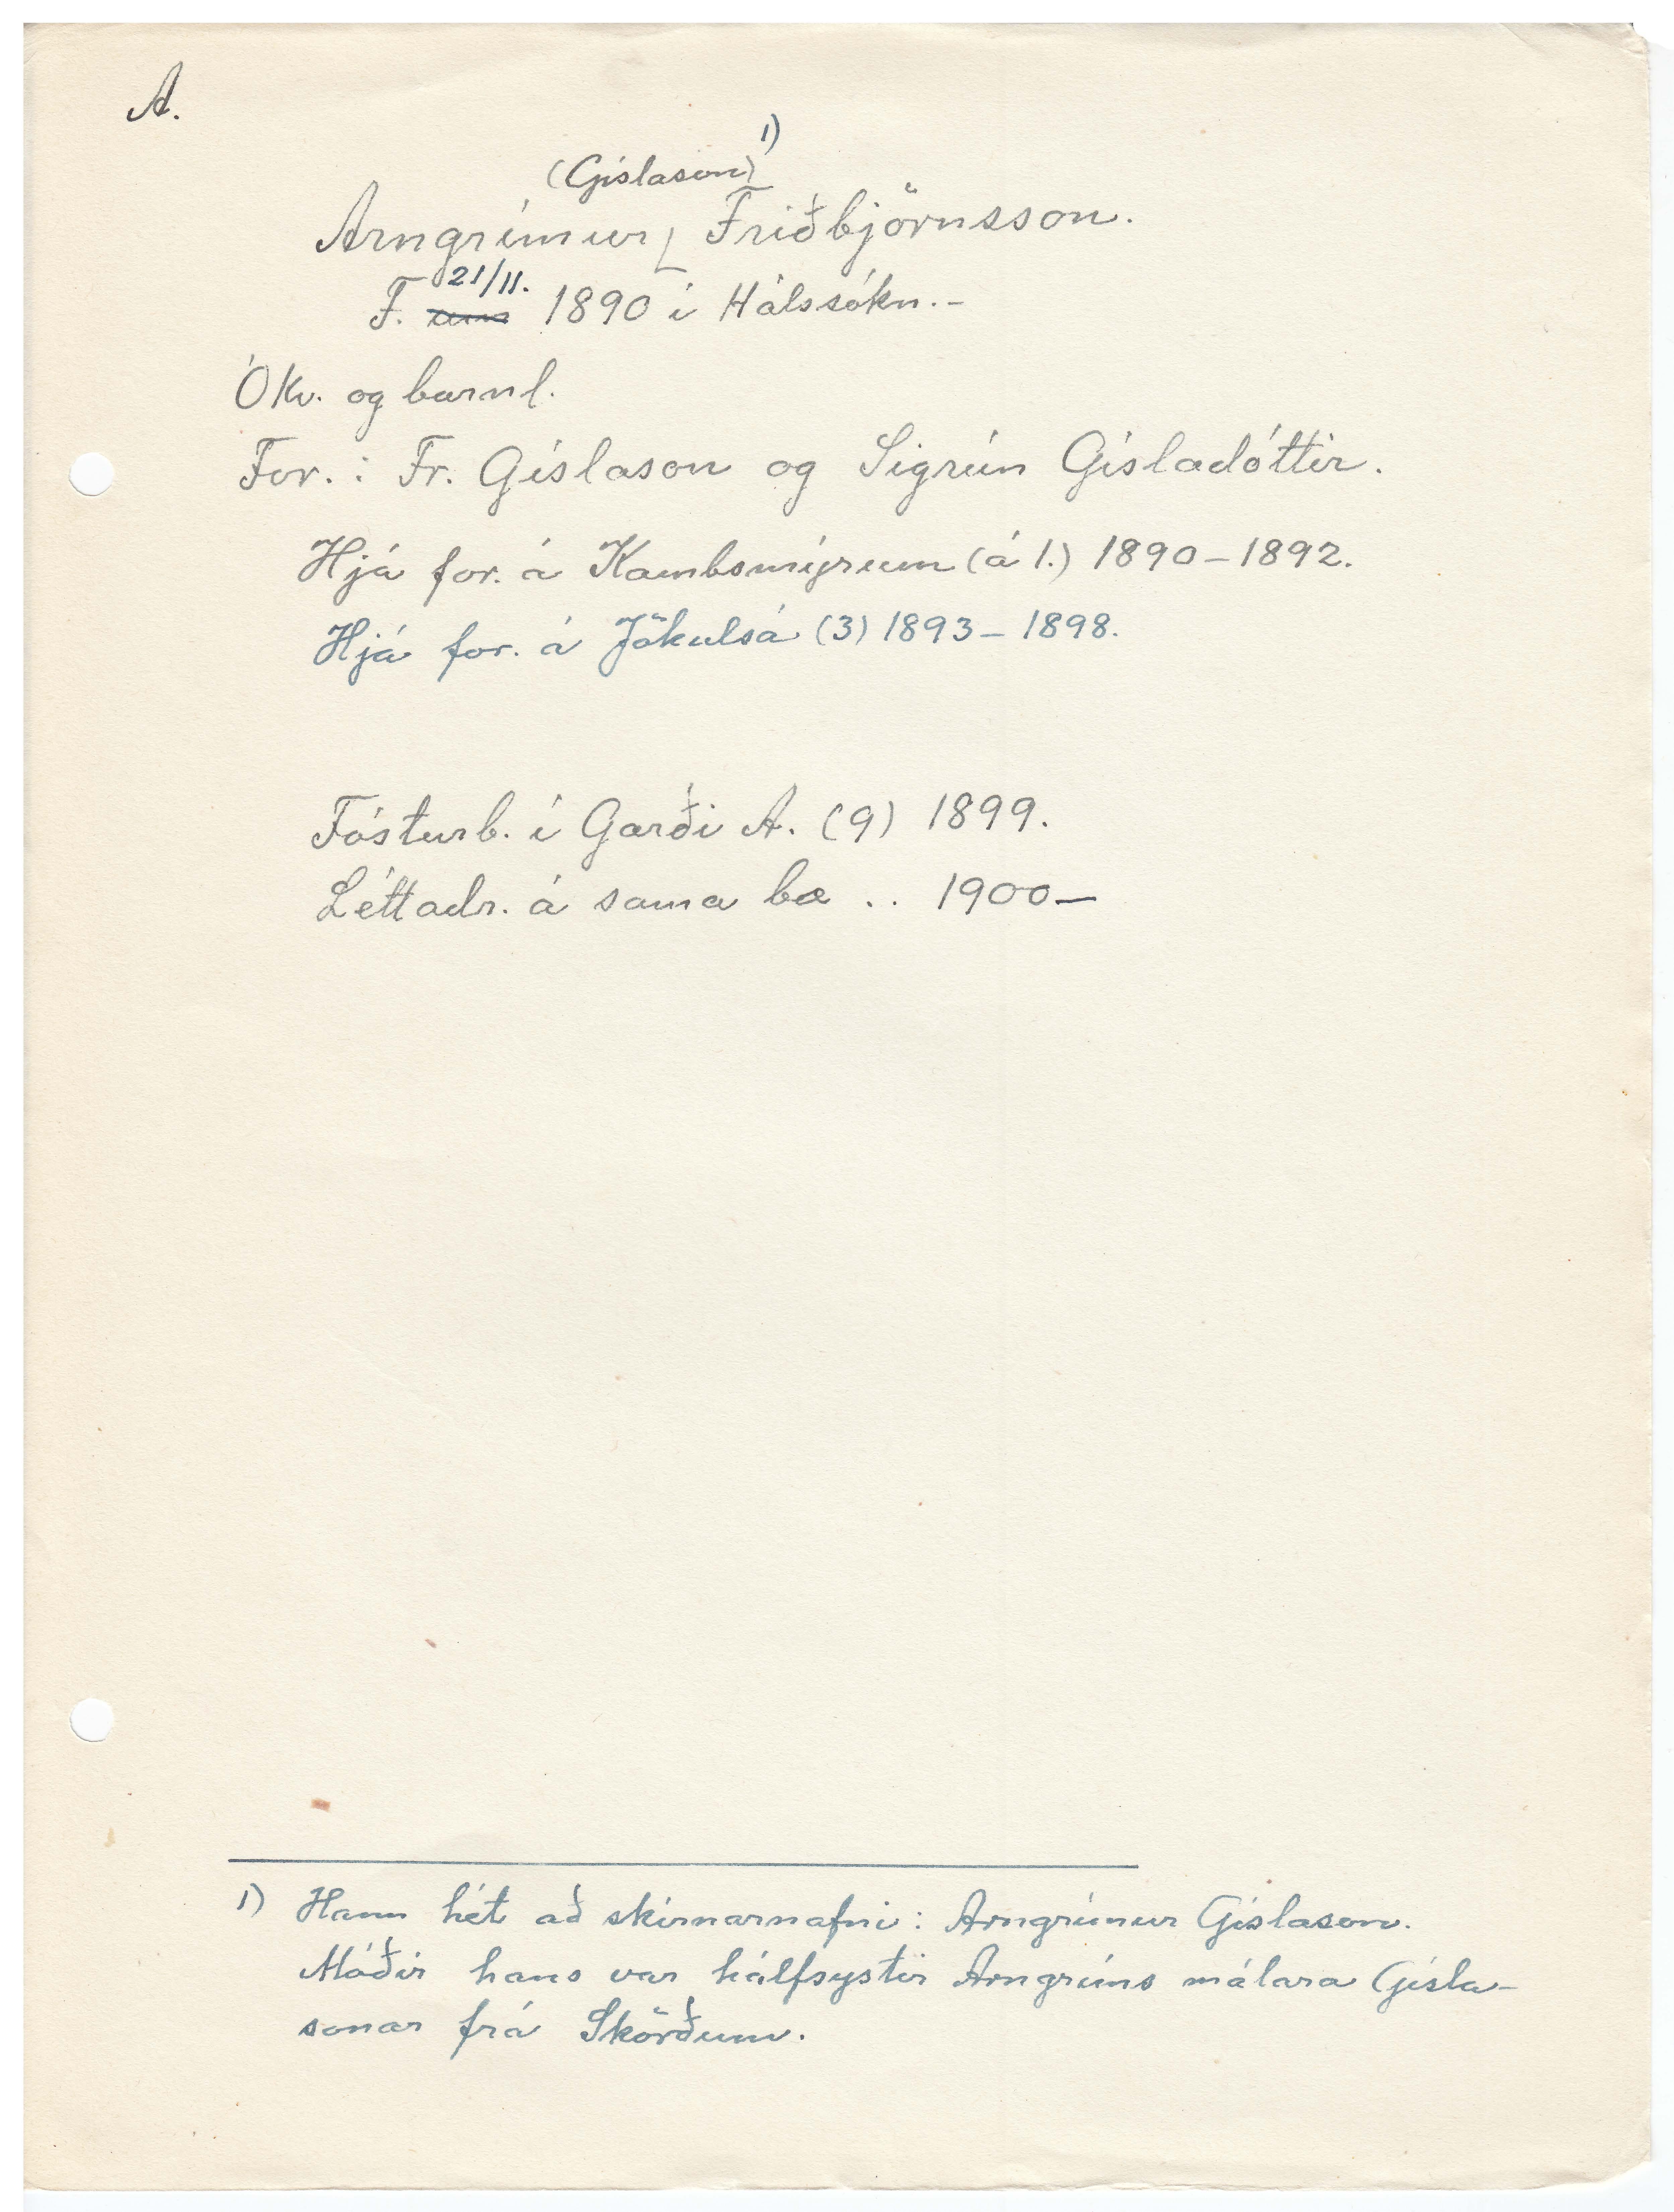 A.
(Gíslason) 1)
Arngrímur Friðbjörnsson.
21/11.
F. um 1890 í Hálssókn.-
Ókv. og barnl.
For.: Fr. Gíslason og Sigrún Gísladóttir.
Hjá for. á Kambsmýrum (á 1.) 1890-1892.
Hjá for. á Jökulsá (3) 1893-1898.
Fósturb. í Garði A. (9) 1899.
Léttadr. á sama bæ .. 1900-
1) Hann hét að skírnarnafni: Arngrímur Gíslason.
Móðir hans var hálfsystir Arngríms málara Gísla-
sonar frá Skörðum.